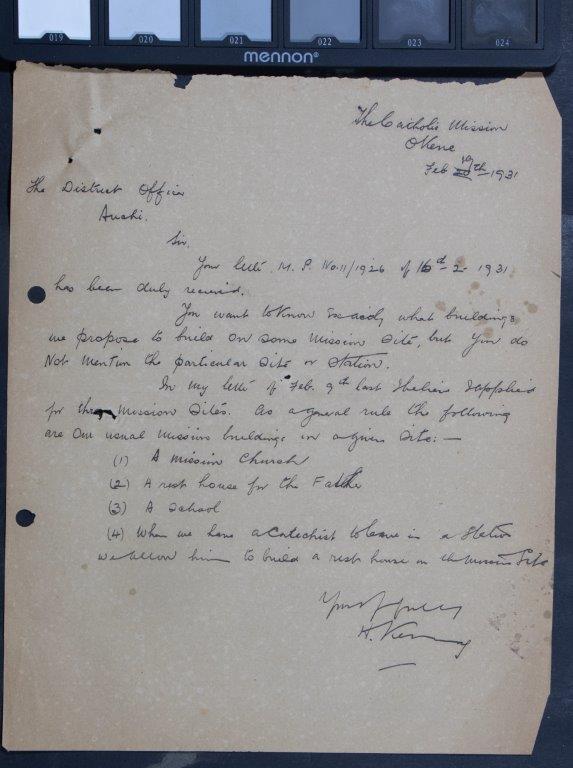 019 020 021 022 023 024
mennon®
The Catholic Mission
Okene
Feb 19th 1931
The District Officer
Auchi.
Sir,
Your letter M. P. No. 11/1926 of 16th-2-1931
has been duly received.
You want to know exactly what buildings
we propose to build on some Mission Site, but you do
Not mention the particular Site or Station.
In my letter of Feb. 9th last I believe I applied
for three Mission Sites. As a general rule the following
are our usual mission buildings in a given Site:—
(1) A mission Church
(2) A rest house for the Father
(3) A School
(4) When we have a Catechist to leave in a Station
we allow him to build a rest house on the Mission Site
Yours f fully
H.